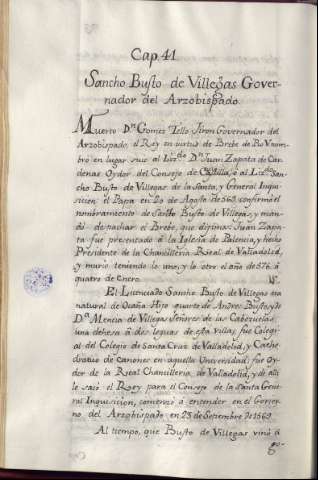 Cap. 41
Sancho Busto de Villegas Gover-
nador del Arzobispado.
Muerto Dn. Gomes Tello Jiron Governador del
Arzobispado, el Rey en virtud de Brebe de Pio V nom-
bró en lugar suio al Lizdo. Dn. Juan Zapata de Car-
denas Oydor del Consejo de Castilla, ó al Lizdo. San-
cho Busto de Villegas de la Santa, y General Inqui-
sicion. el Papa en 20 de Agosto de 569 confirmó el
nombramiento de Sancho Busto de Villegas, y man-
dó despachar el Brebe, que Juan Zapa-
ta fue presentado á la Iglesia de Palencia, y hecho
Presidente de la Chancilleria Real de Valladolid,
y murio teniendo lo uno, y lo otro el año de 576. á
quatro de Enero.
El Licenciado Sancho Busto de Villegas era
natural de Ocaña. Hijo quarto de Andres Busto, y de
Da. Mencia de Villegas Señores de las Cabezuelas,
una dehesa á dos leguas de esta villa; fue Colegi-
al del Colegio de Santa Cruz de Valladolid, y Cathe-
dratico de Canones en aquella Universidad: fue Oy-
dor de la Real Chancilleria de Valladolid, y de alli
le sacó el Rey para el Consejo de la Santa Gene-
ral Inquisicion, comenzó á entender en el Govier-
no del Arzobispado en 23 de Septiembre de 1569.
Al tiempo, que Busto de Villegas vino á
go-